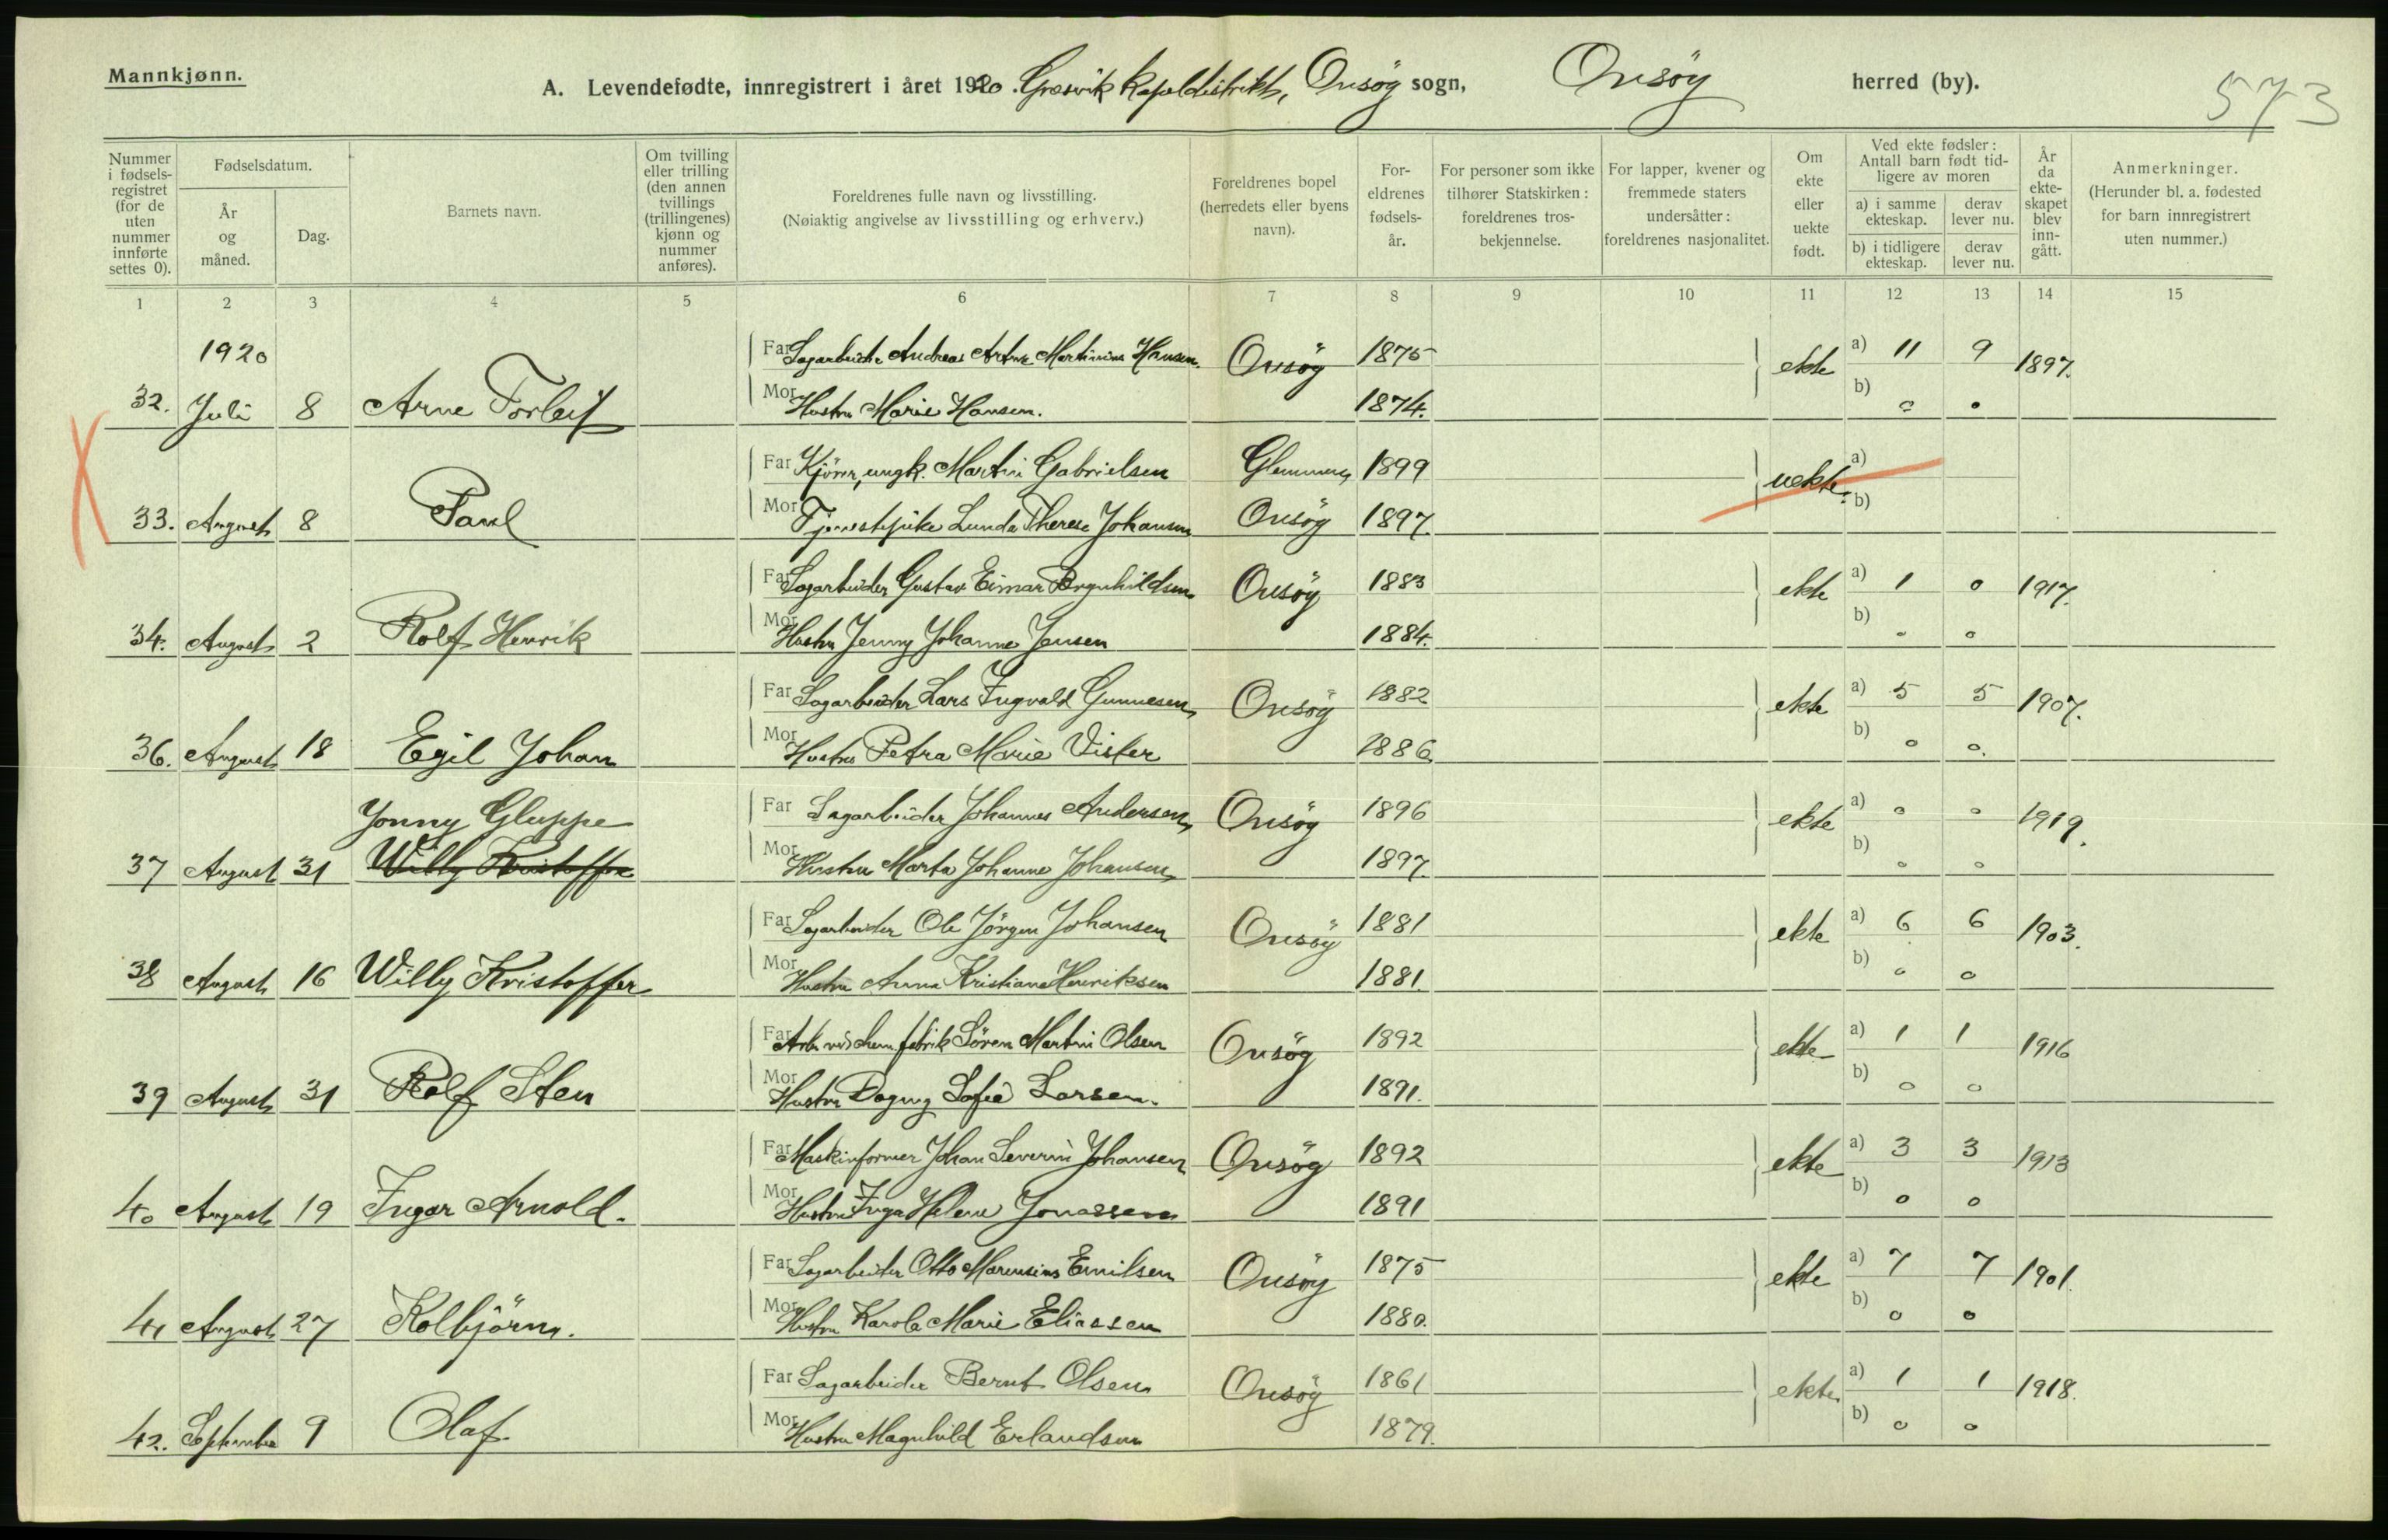 Mannkjønn.
A. Levendefødte, innregistrert i året 1920. Græsvik kapeldistrikt, Onsöy sogn, Onsöy herred (by).
573
Nummer i fødsels-registret (for de uten nummer innførte settes 0).
Fødselsdatum.
År og måned.
Dag.
Barnets navn.
Om tvilling eller trilling (den annen tvillings (trillingenes) kjønn og nummer anføres).
Foreldrenes fulle navn og livsstilling.
(Nøiaktig angivelse av livsstilling og erhverv.)
Foreldrenes bopel (herredets eller byens navn).
For-eldrenes fødsels-år.
For personer som ikke tilhører Statskirken: foreldrenes tros-bekjennelse.
For lapper, kvener og fremmede staters undersåtter: foreldrenes nasjonalitet.
Om ekte eller uekte født.
Ved ekte fødsler: Antall barn født tid-ligere av moren
a) i samme ekteskap.
derav lever nu.
b) i tidligere ekteskap.
derav lever nu.
År da ekte-skapet blev inn-gått.
Anmerkninger.
(Herunder bl. a. fødested for barn innregistrert uten nummer.)
1 2 3 4 5 6 7 8 9 10 11 12 13 14 15
1920
Far Sagarbeider Andreas Artur Martinius Hansen. Onsöy 1875 ekte a) 11 9 1897.
32. Juli 8 Arne Torleif Mor Hustru Marie Hansen. 1874. b) 0 0
Far Kjörer, ungk. Martin Gabrielsen Glemmen, 1899 uekte. a)
33. August 8 Paul Mor Tjenestepike Lunda Therese Johansen Onsöy 1897. b)
Far Sagarbeider Gustav Eimar Borgnhildsen Onsöy 1883 ekte a) 1 0 1917.
34. August 2 Rolf Henrik Mor Hustru Jenny Johanne Jensen 1884. b) 0 0
Far Sagarbeider Lars Ingvald Gunnesen, Onsöy 1882 ekte a) 5 5 1907.
36. August 18 Egil Johan Mor Hustru Petra Marie Visler 1886. b) 0 0.
Yonny Gluppe Far Sagarbeider Johannes Andersen, Onsöy 1896 ekte a) 0 0 1919.
37 August 31 Willy Kristoffer Mor Hustru Marta Johanne Johansen, 1897. b) 0 0
Far Sagarbeider Ole Jörgen Johansen Onsöy 1881 ekte a) 6 6 1903.
38 August 16 Willy Kristoffer Mor Hustru Anna Kristiane Henriksen 1881. b) 0 0
Far Arb. ved chem. fabrik Sören Martin Olsen Onsöy 1892 ekte a) 1 1 1916
39 August 31 Rolf Sten Mor Hustru Dagny Sofie Larsen. 1891. b) 0 0
Far Maskinformer Johan Severin Johansen Onsöy 1892 ekte a) 3 3 1913
40 August 19 Ingar Arnold. Mor Hustru Inga Helene Jonassen 1891 b) 0 0
Far Sagarbeider Otto Marensius Emilsen Onsöy 1875 ekte a) 7 7 1901.
41 August 27 Kolbjörn. Mor Hustru Karola Marie Eliassen 1880. b) 0 0
Far Sagarbeider Bernt Olsen Onsöy 1861 ekte. a) 1 1 1918.
42. September 9 Olaf. Mor Hustru Magnhild Erlandsen 1879. b) 0 0